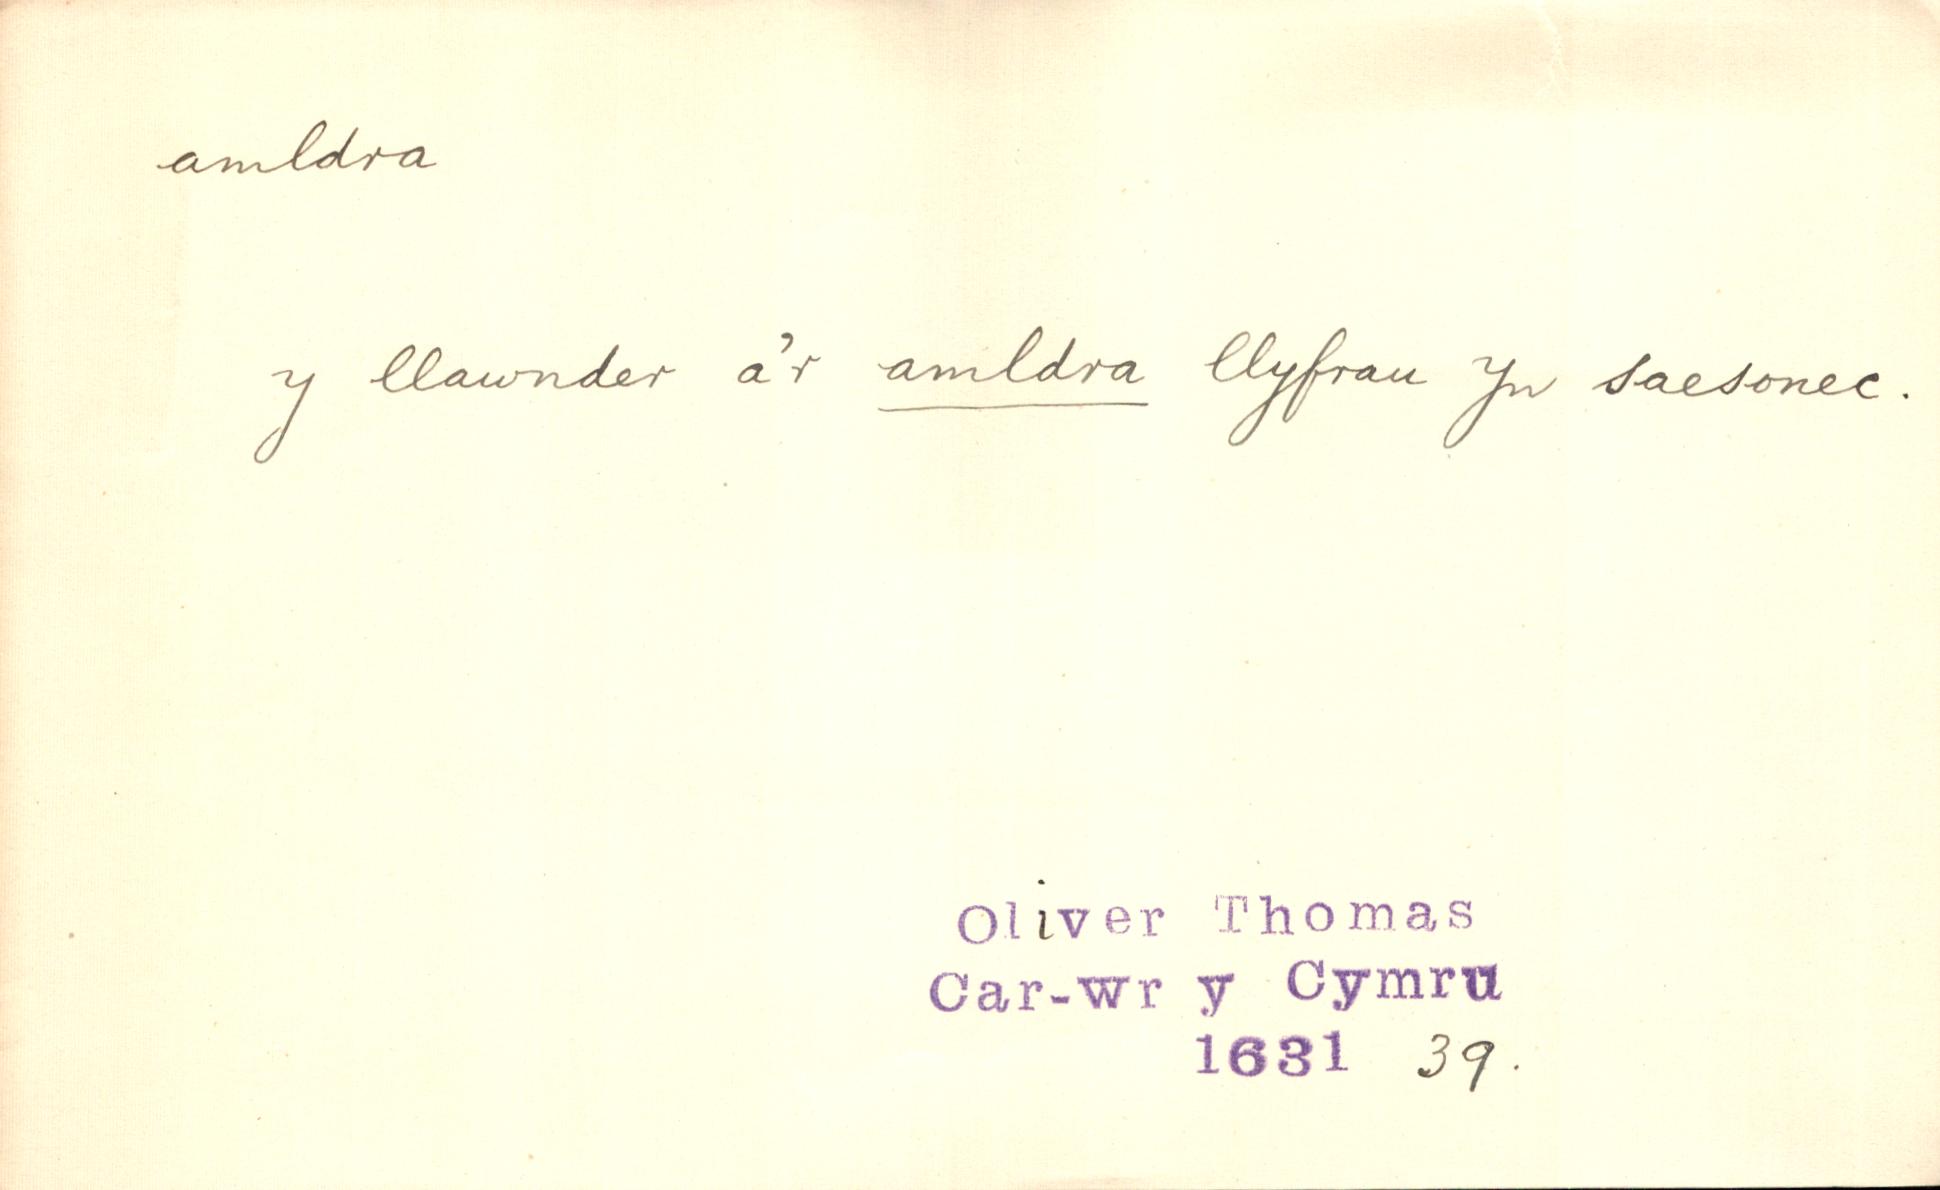 amldra
y llawnder a'r amldra llyfrau yn saesonec.
Oliver Thomas
Car-wr y Cymru
1631 39.